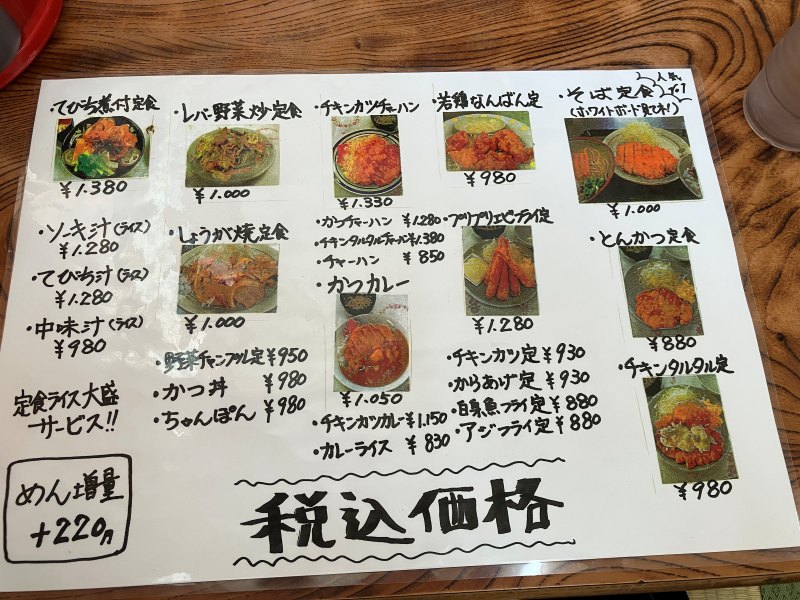 ・てびち煮付定食
¥1.380
・ソーキ汁(ライス)
¥1.280
・てびち汁(ライス)
¥1.280
・中味汁(ライス)
¥980
定食ライス大盛
サービス!!
めん増量
+220円
・レバー野菜炒定食
¥1.000
・しょうが焼定食
¥1.000
・野菜チャンプル定 ¥950
・かつ丼 ¥980
・ちゃんぽん ¥980
・チキンカツチャーハン
¥1.330
・カツチャーハン ¥1.280
・チキンタルタルチャーハン ¥1.380
・チャーハン ¥850
・かつカレー
¥1.050
・チキンカツカレー ¥1.150
・カレーライス ¥830
・若鶏なんばん定
¥980
・プリプリエビフライ定
¥1.280
・チキンカツ定 ¥930
・からあげ定 ¥930
・白身魚フライ定 ¥880
・アジフライ定 ¥880
人気
・そば定食
(ホワイトボード見てネ!)
¥1.000
・とんかつ定食
¥880
・チキンタルタル定
¥980
税込価格